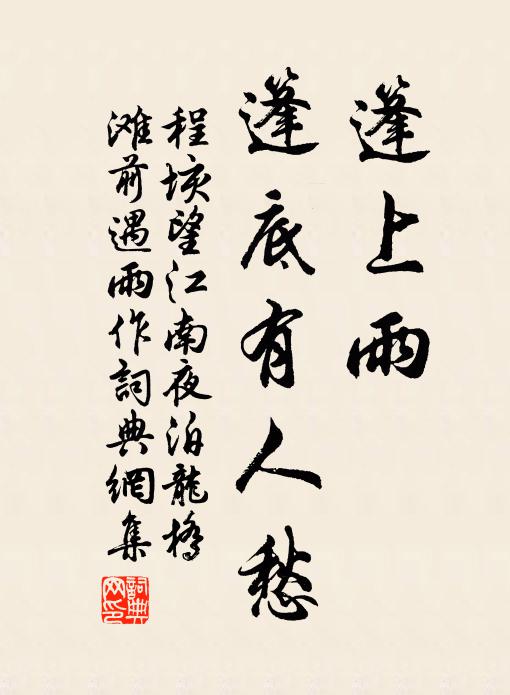 篷上雨
篷底有人愁
程垓望江南夜泊龍橋
滩前遇雨作詞典網集
詞典网印